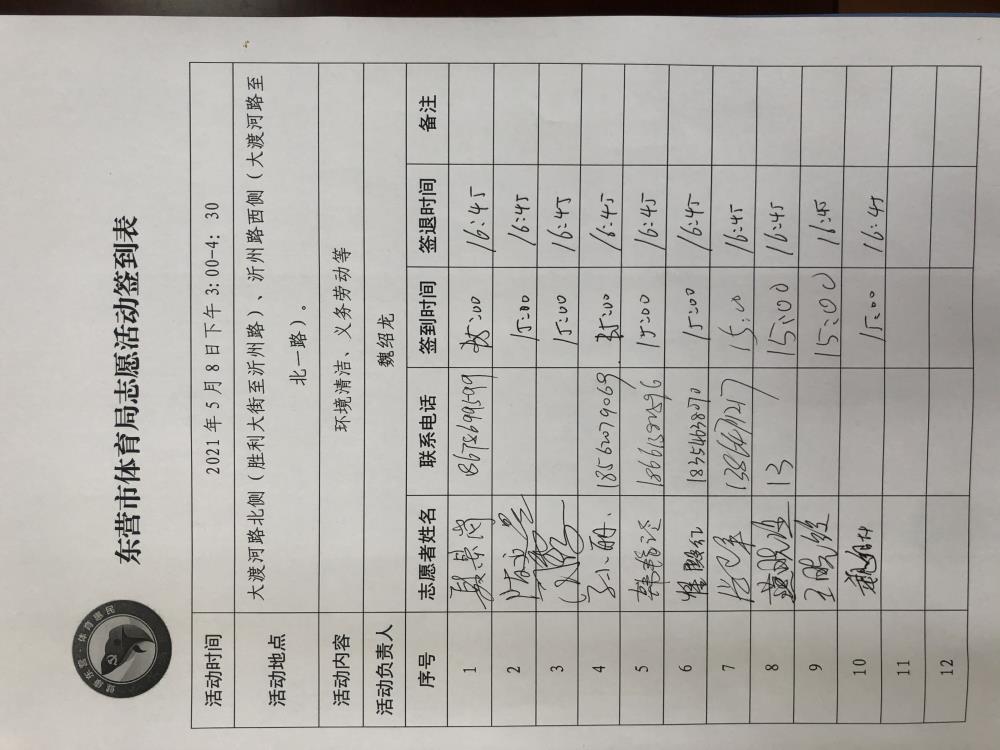 东营市体育局志愿活动签到表
活动时间 2021年5月8日下午3:00-4:30
活动地点 大渡河路北侧（胜利大街至沂州路）、沂州路西侧（大渡河路至
北一路）。
活动内容 环境清洁、义务劳动等
活动负责人 魏绍龙
序号 志愿者姓名 联系电话 签到时间 签退时间 备注
1 15:00 16:45
2 15:00 16:45
3 15:00 16:45
4 孙小丽 18562079069 15:00 16:45
5 15:00 16:45
6 18354638070 15:00 16:45
7 15:00 16:45
8 13 15:00 16:45
9 王晓经 15:00 16:45
10 15:00 16:45
11
12